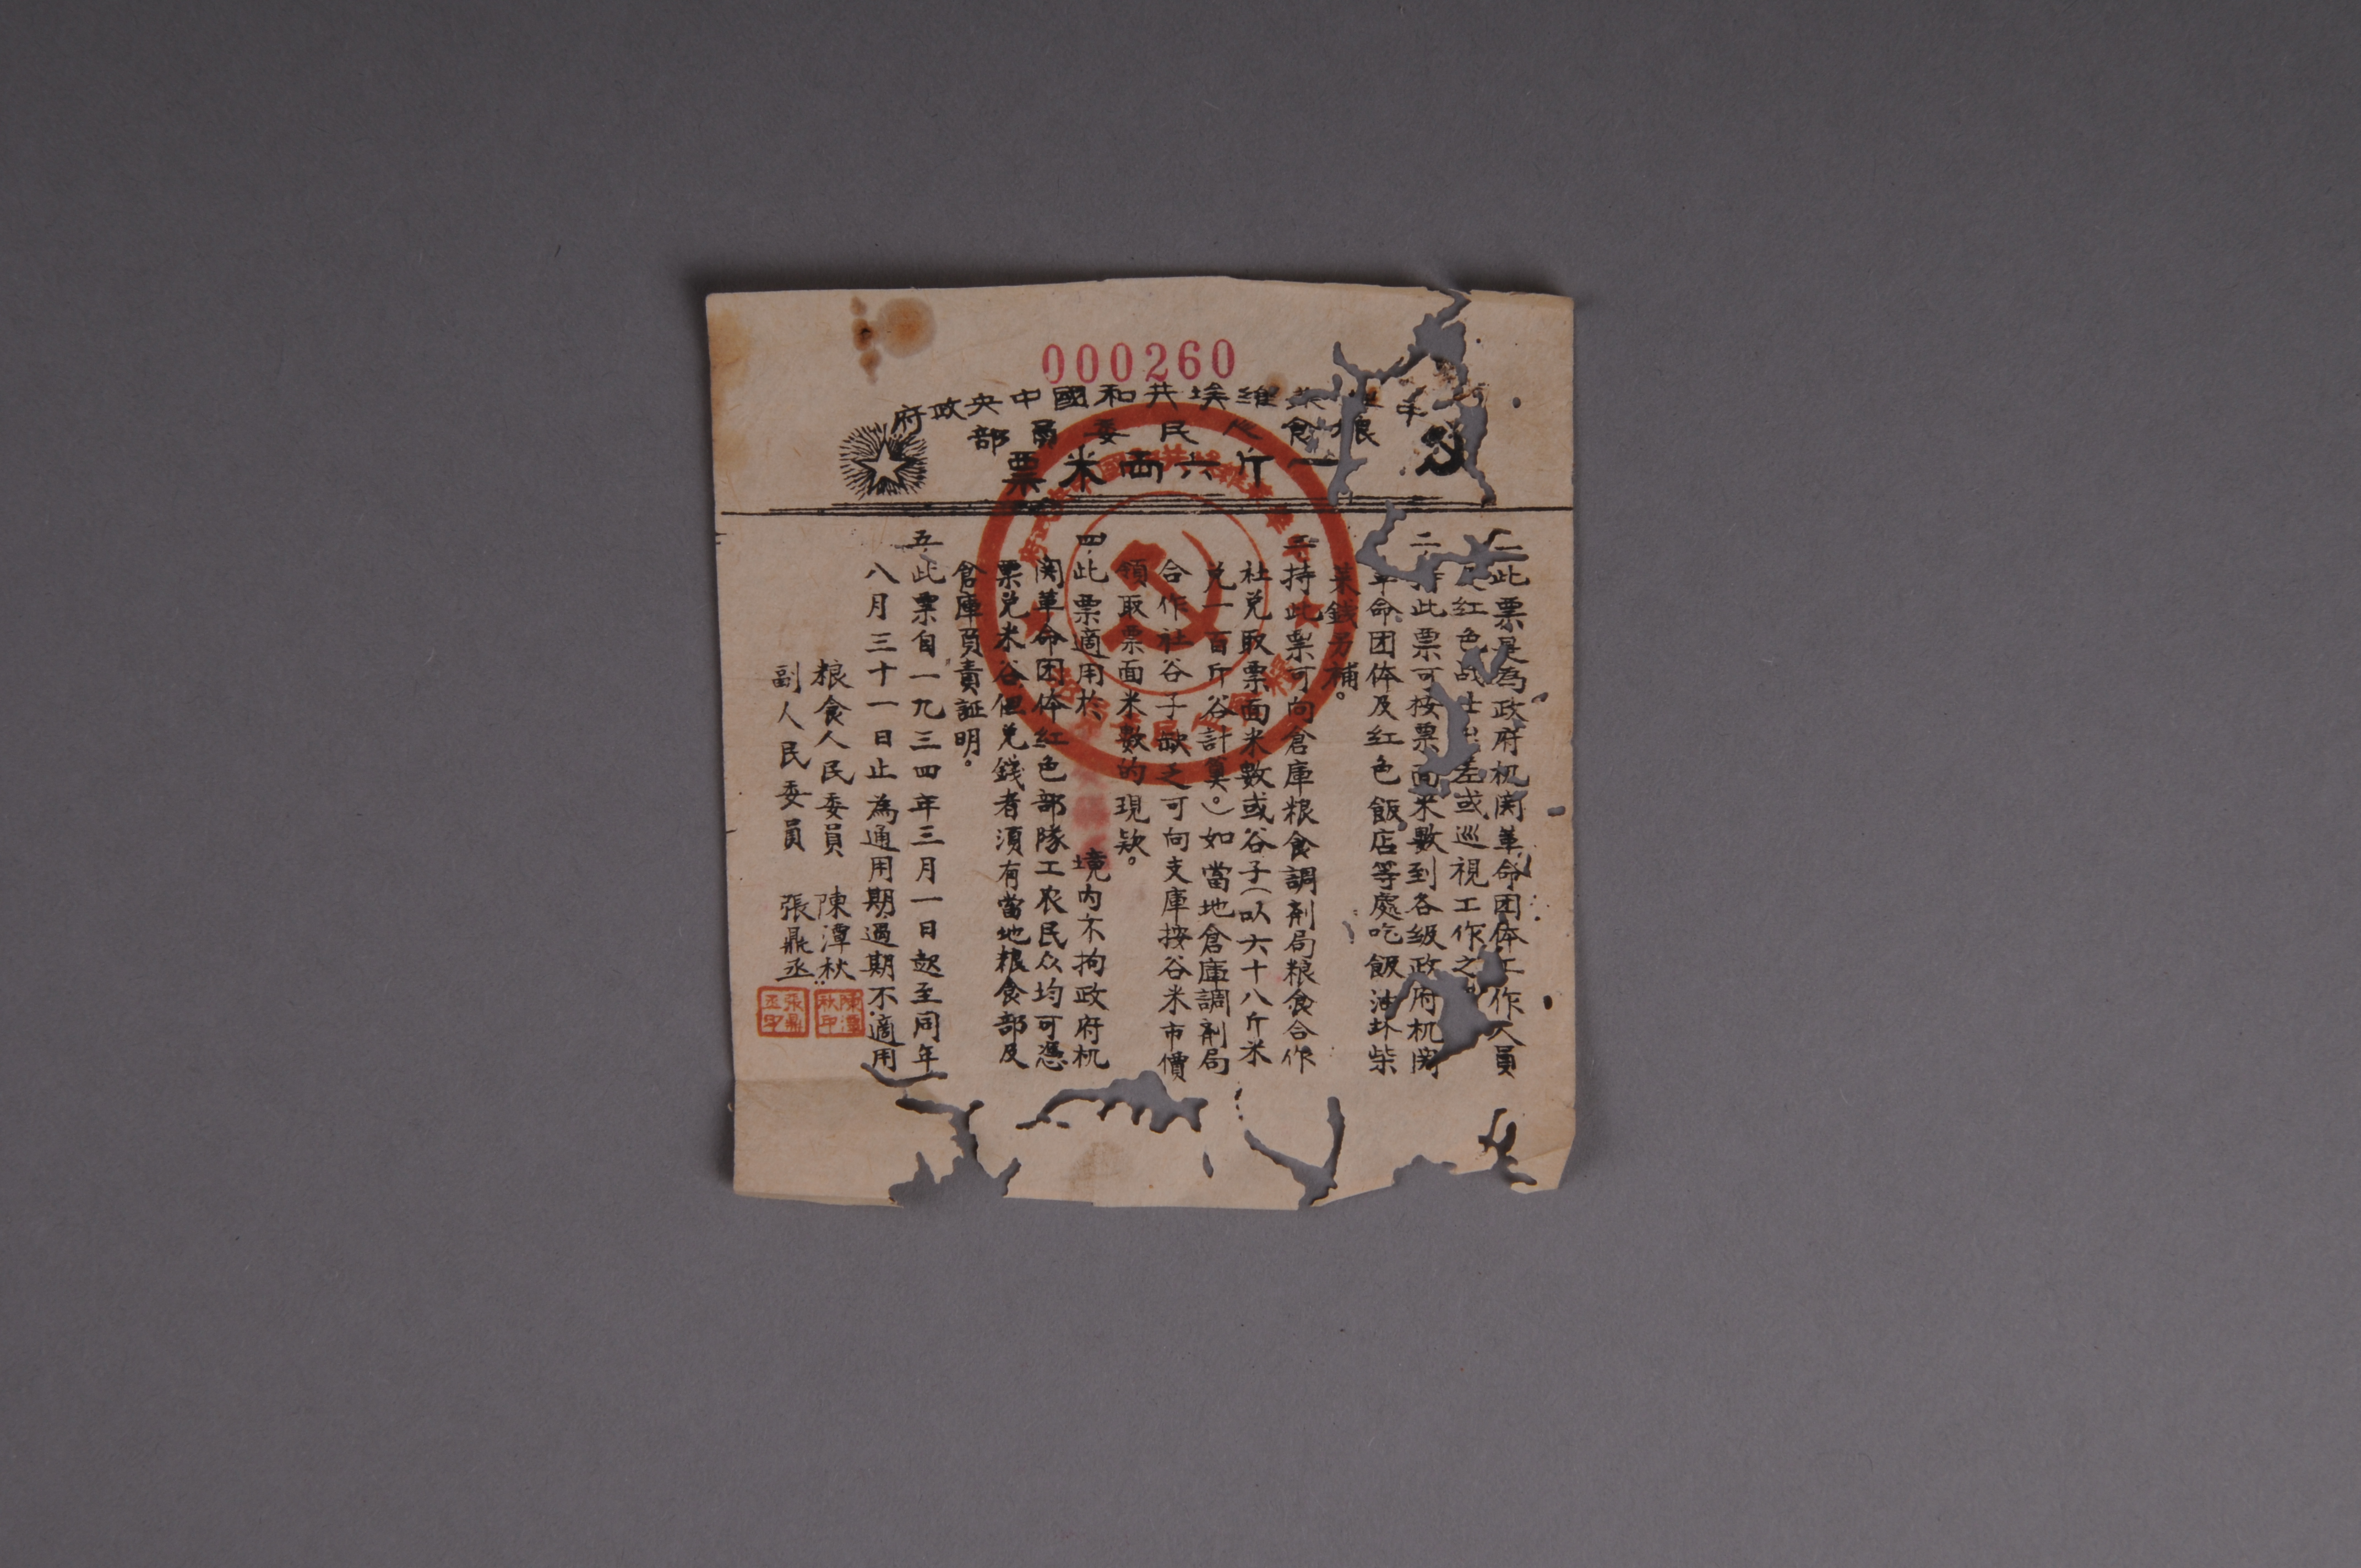 000260
中華蘇維埃共和國中央政府
粮食人民委員部
一斤六両米票
一、此票是為政府机関革命团体工作人員
及红色战士出差或巡視工作之。
二、持此票可按票面米數到各级政府机関
革命团体及红色飯店等處吃飯油盐柴
菜錢另補。
三、持此票可向倉庫粮食調剤局粮食合作
社兑取票面米數或谷子（以六十八斤米
兑一百斤谷計算。）如當地倉庫調剤局
合作社谷子缺乏可向支庫按谷米市價
領取票面米數的現欵。
四、此票適用於 境内不拘政府机
関革命团体红色部隊工农民众均可憑
票兑米谷但兑錢者須有當地粮食部及
倉庫負責証明。
五、此票自一九三四年三月一日起至同年
八月三十一日止為通用期過期不適用
粮食人民委員 陳潭秋
副人民委員 張鼎丞
陳潭秋印
張鼎丞印